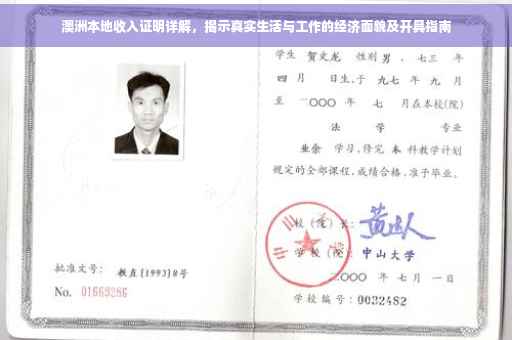 澳洲本地收入证明详解，揭示真实生活与工作的经济面貌及开具指南
学生 贺文龙 性别 男 、七三 年
四 月 日生,于 九七 年 九 月
至 二〇〇〇 年 七 月在本校(院)
法 学 专业
业余 学习,修完 本 科教学计划
规定的全部课程,成绩合格,准予毕业。
校 (院) 长:
学 校 (院): 中山大学
二〇〇〇 年 七 月 一 日
学校编号: 0032482
批准文号: 教直[1993]8号
No. 01669286